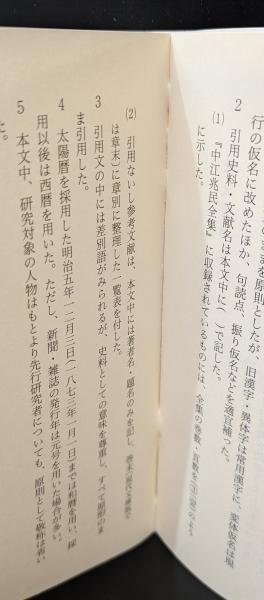 を原則としたが、旧漢字・異体字は常用漢字に、変体仮名は現
行の仮名に改めたほか、句読点、振り仮名などを適宜補った。
2 引用史料・文献名は本文中に( )で記した。
(1) 『中江兆民全集』に収録されているものには、全集の巻数・頁数を のよう
に示した。
(2) 引用ないし参考文献は、本文中には著者名・題名のみを記し、
は章末)に章別に整理した一覧表を付した。
3 引用文の中には差別語がみられるが、史料としての意味を尊重し、すべて原形のま
ま引用した。
4 太陽暦を採用した明治五年一二月三日(一八七三年一月一日)までは和暦を用い、採
用以後は西暦を用いた。ただし、新聞・雑誌の発行年は元号を用いた場合が多い。
5 本文中、研究対象の人物はもとより先行研究者についても、原則として敬称は省い
た。